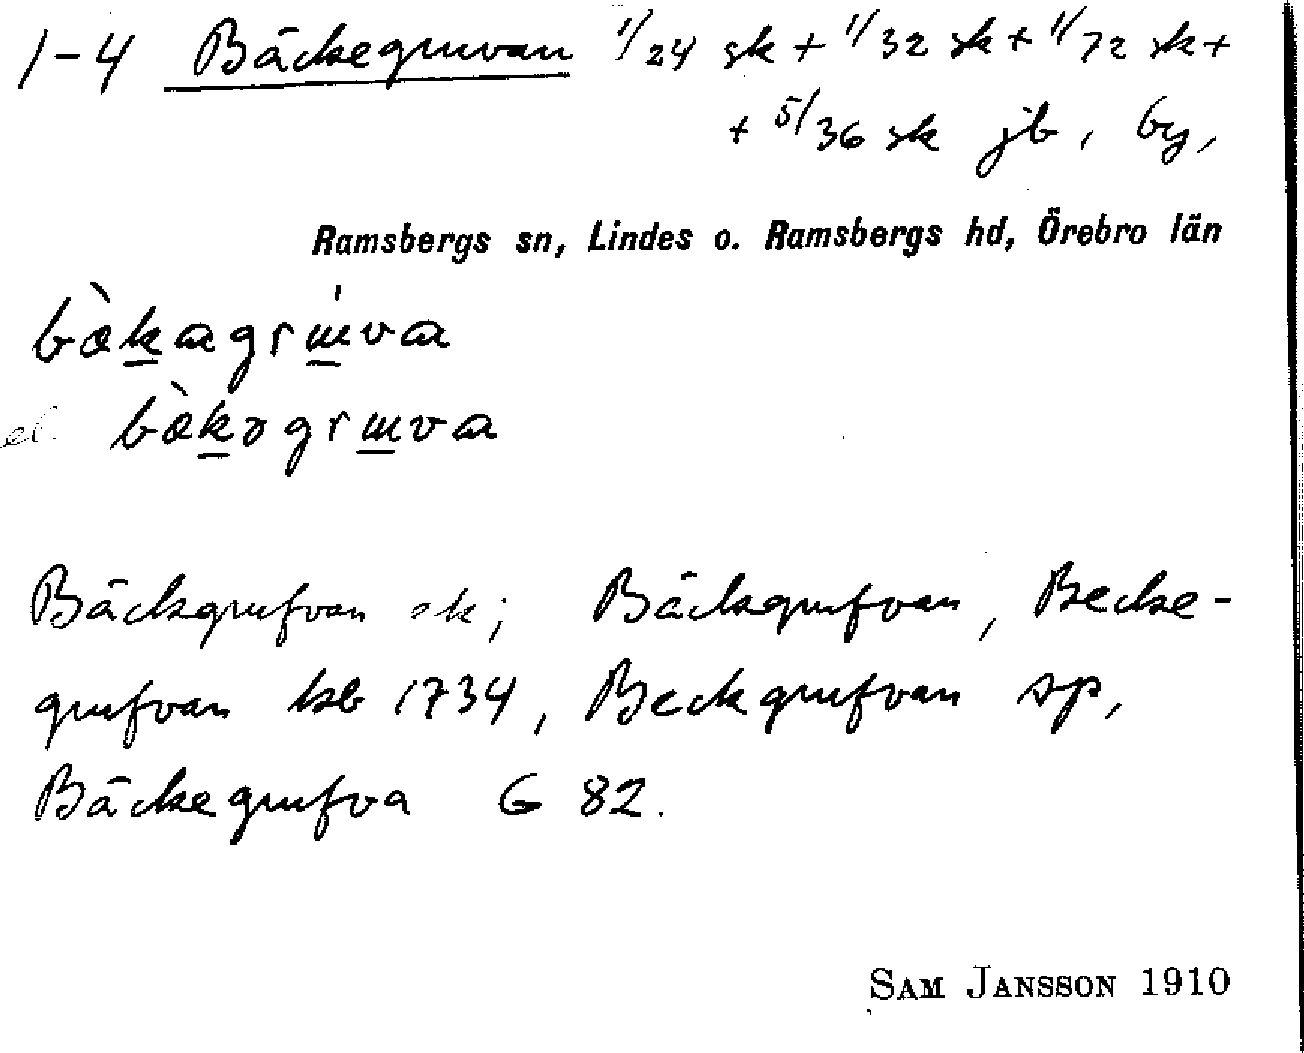 1-4 Bäckegruvan 1/24 sk + 1/32 sk + 1/72 sk +
+ 5/36 sk jb, by,
Ramsbergs sn, Lindes o. Ramsbergs hd, Örebro län
bæ̀kagrɯ́va
el. bæ̀kəgrɯva
Bäckgrufvan sk; Bäckgrufvan, Becke-
grufvan kb 1734, Beckgrufvan sp,
Bäckegrufva G 82.
SAM JANSSON 1910